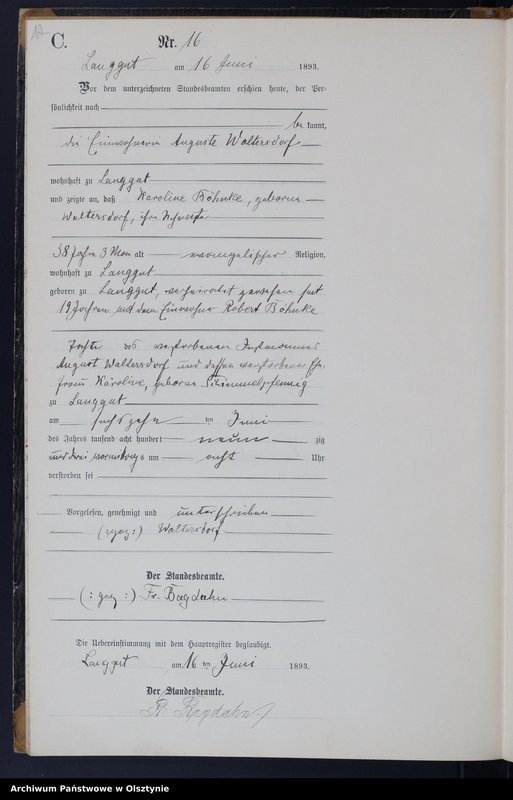 17
C.
Nr. 16
Langgut am 16 Juni 1893.
Vor dem unterzeichneten Standesbeamten erschien heute, der Per-
sönlichkeit nach
be kannt,
die Einwohnerin Auguste Waltersdorf
wohnhaft zu Langgut
und zeigte an, daß Karoline Böhnke, geborene
Waltersdorf, ihre Schwester
38 Jahre 3 Mon alt evangelischer Religion,
wohnhaft zu Langgut
geboren zu Langgut, verheirathet gewesen seit
19 Jahren mit dem Einwohner Robert Böhnke
Tochter des verstorbenen Instmannes
August Waltersdorf und dessen verstorbener Ehe-
frau Karoline, geborene Schimmelpfennig
zu Langgut
am sechszehn ten Juni
des Jahres tausend acht hundert neun zig
und drei vormittags um acht Uhr
verstorben sei
Vorgelesen, genehmigt und unterschrieben
(:gez:) Waltersdorf
Der Standesbeamte.
(: gez :) Fr. Bagdahn
Die Uebereinstimmung mit dem Hauptregister beglaubigt.
Langgut am 16 ten Juni 1893.
Der Standesbeamte.
Fr Bagdahn
Archiwum Państwowe w Olsztynie